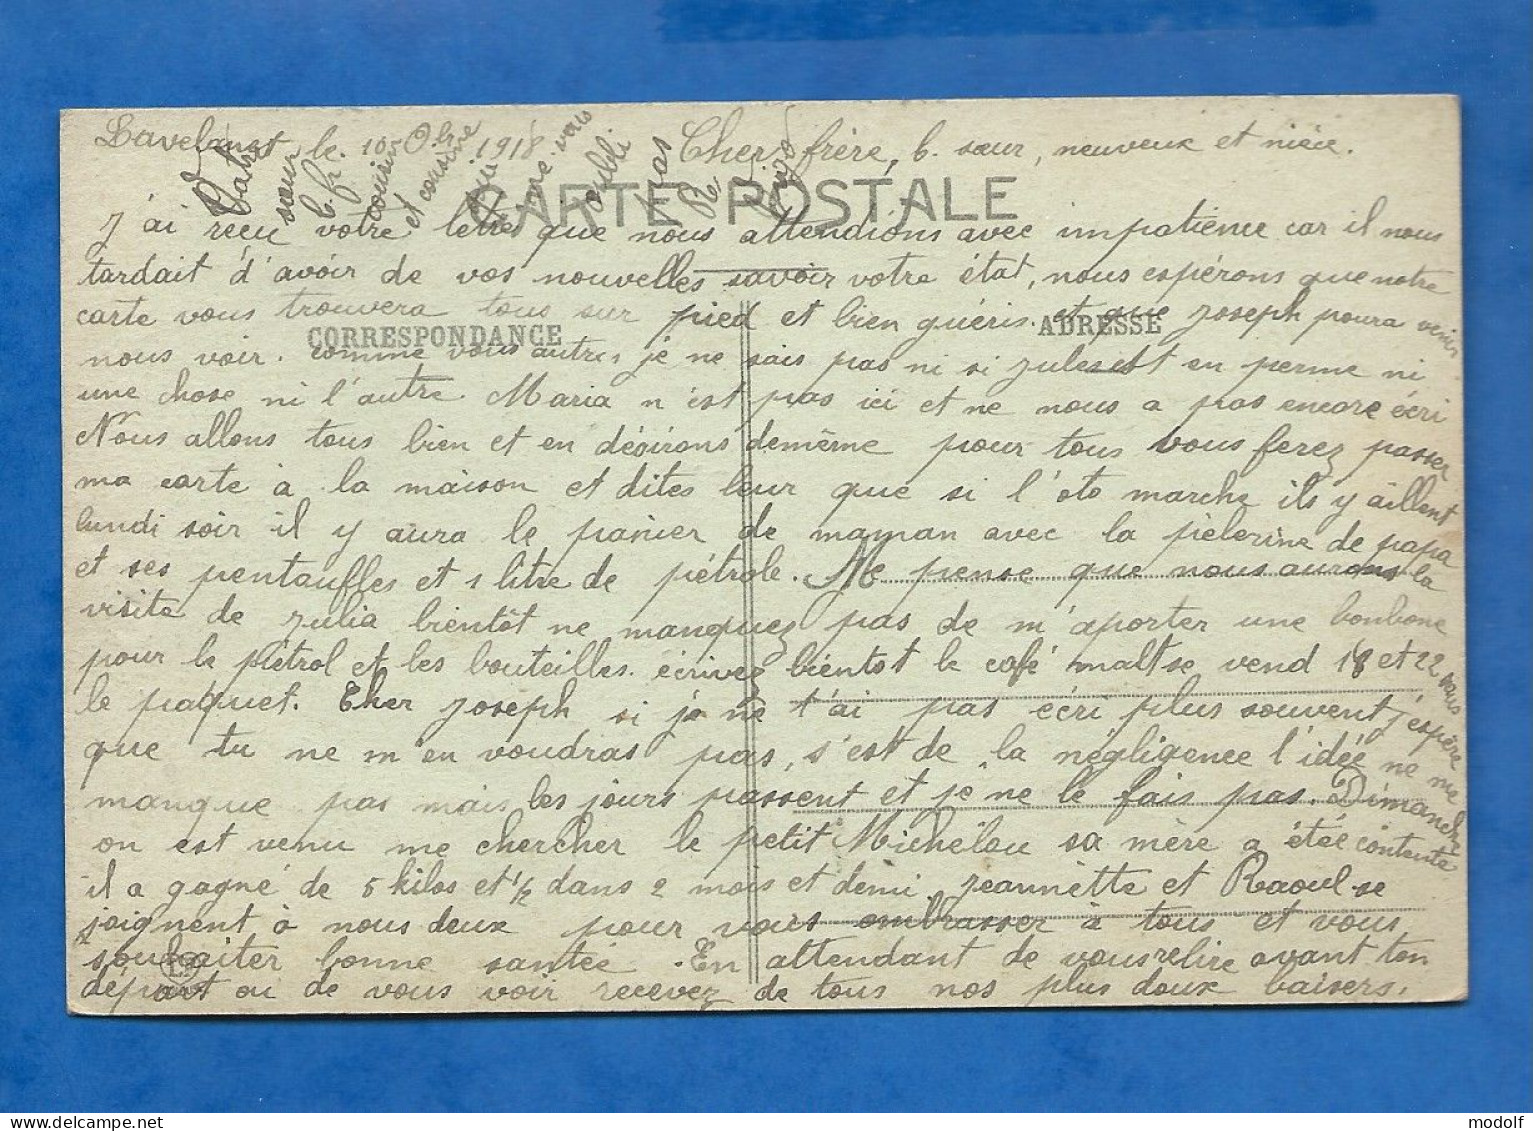 Lavelanet le 10 Obr 1918 Cher frère, b. sœur, neuveux et nièce.
CARTE POSTALE
J'ai reçu votre lettre que nous attendions avec impatience car il nous
tardait d'avoir de vos nouvelles savoir votre état, nous espérons que notre
carte vous trouvera tous sur pied et bien guéris. et que Joseph poura venir
CORRESPONDANCE ADRESSE
nous voir. comme vous autres je ne sais pas ni si Jules est en perme ni
une chose ni l'autre. Maria n'est pas ici et ne nous a pas encore écri
Nous allons tous bien et en désirons demême pour tous vous ferez passer
ma carte à la maison et dites leur que si l'oto marche ils y aillent
lundi soir il y aura le panier de maman avec la pèlerine de papa
et ses pentaufles et 1 litre de pétrole. Me pense que nous aurons la
visite de Julia bientôt ne manquez pas de m'aporter une bonbone
pour le pétrol et les bouteilles. écrivez bientot le café malt se vend 18 et 22 sous
le paquet. Cher Joseph si je ne t'ai pas écri plus souvent j'espère
que tu ne m'en voudras pas, s'est de la négligence l'idée ne me
manque pas mais les jours passent et je ne le fais pas. Dimanche
on est venu me chercher le petit Michélou sa mère a étée contente
il a gagné de 5 kilos et 1/2 dans 2 mois et demi Jeannette et Raoul se
joignent à nous deux pour vous embrasser à tous et vous
souhaiter bonne santée. En attendant de vous relire avant ton
départ ou de vous voir recevez de tous nos plus doux baisers.
Votre
sœur
b. fr
cousin
et cousine
qui
ne vous
oubli
pas
R
modolf